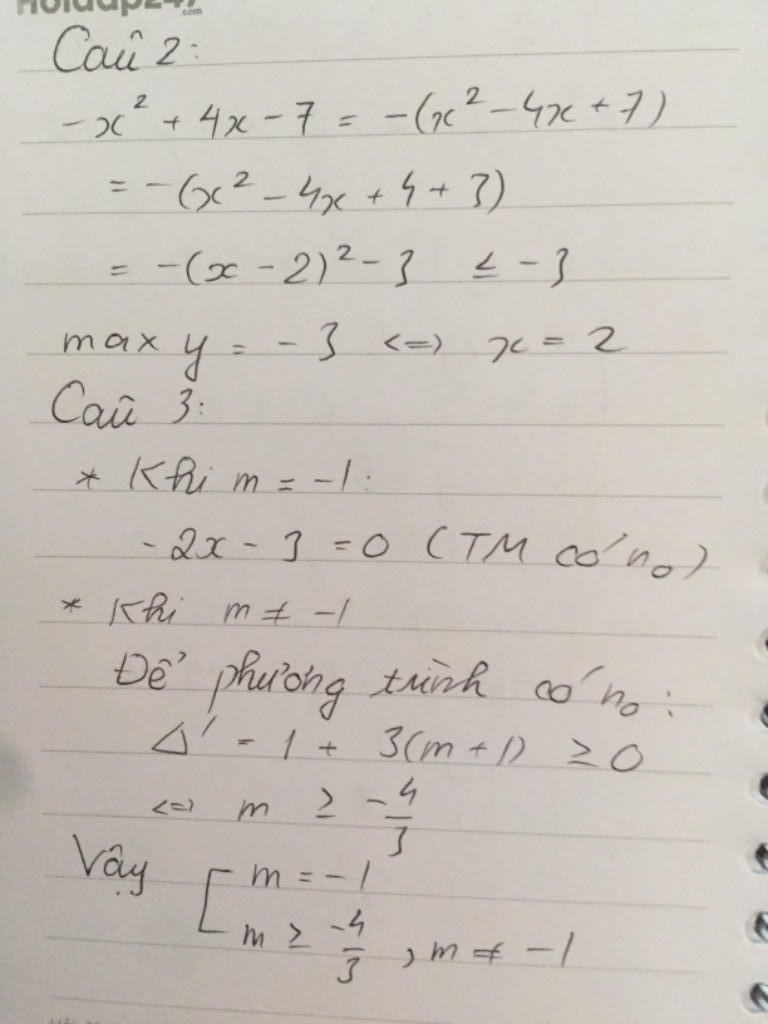 Hoidap247
.com
Câu 2:
-x² + 4x - 7 = -(x² - 4x + 7)
= -(x² - 4x + 4 + 3)
= -(x - 2)² - 3 ≤ -3
max y = -3 <=> x = 2
Câu 3:
* Khi m = -1:
-2x - 3 = 0 (TM có n₀)
* Khi m ≠ -1
Để phương trình có n₀:
Δ' = 1 + 3(m + 1) ≥ 0
<=> m ≥ -4/3
Vậy [ m = -1
m ≥ -4/3 , m ≠ -1